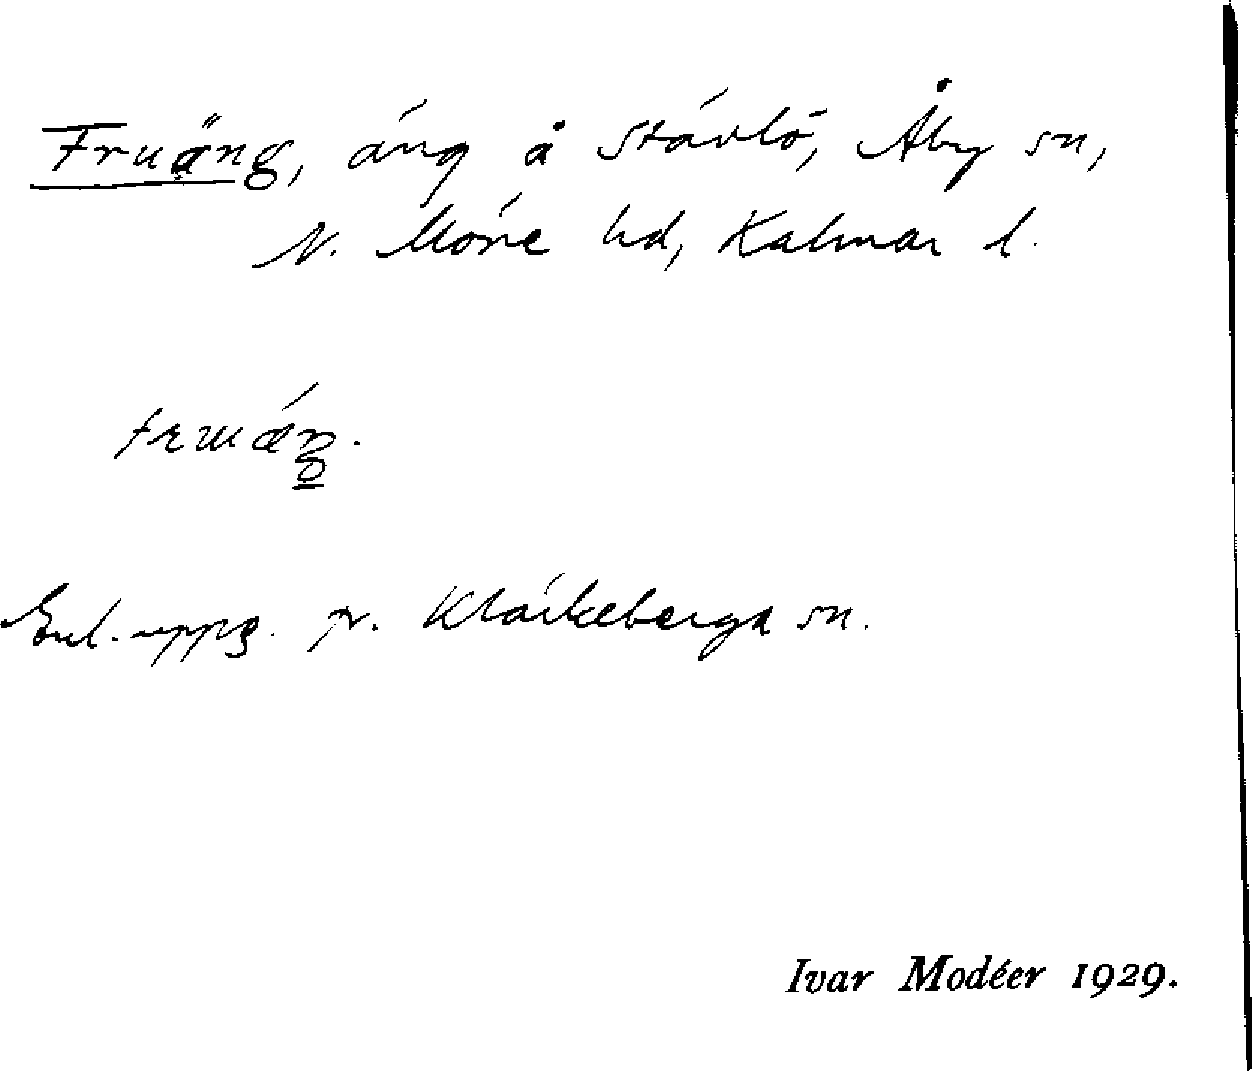 Fruäng, äng å Stävlö, Åby sn,
N. Möre hd, Kalmar l.
Enl. uppg. fr. Kläckeberga sn.
Ivar Modéer 1929.